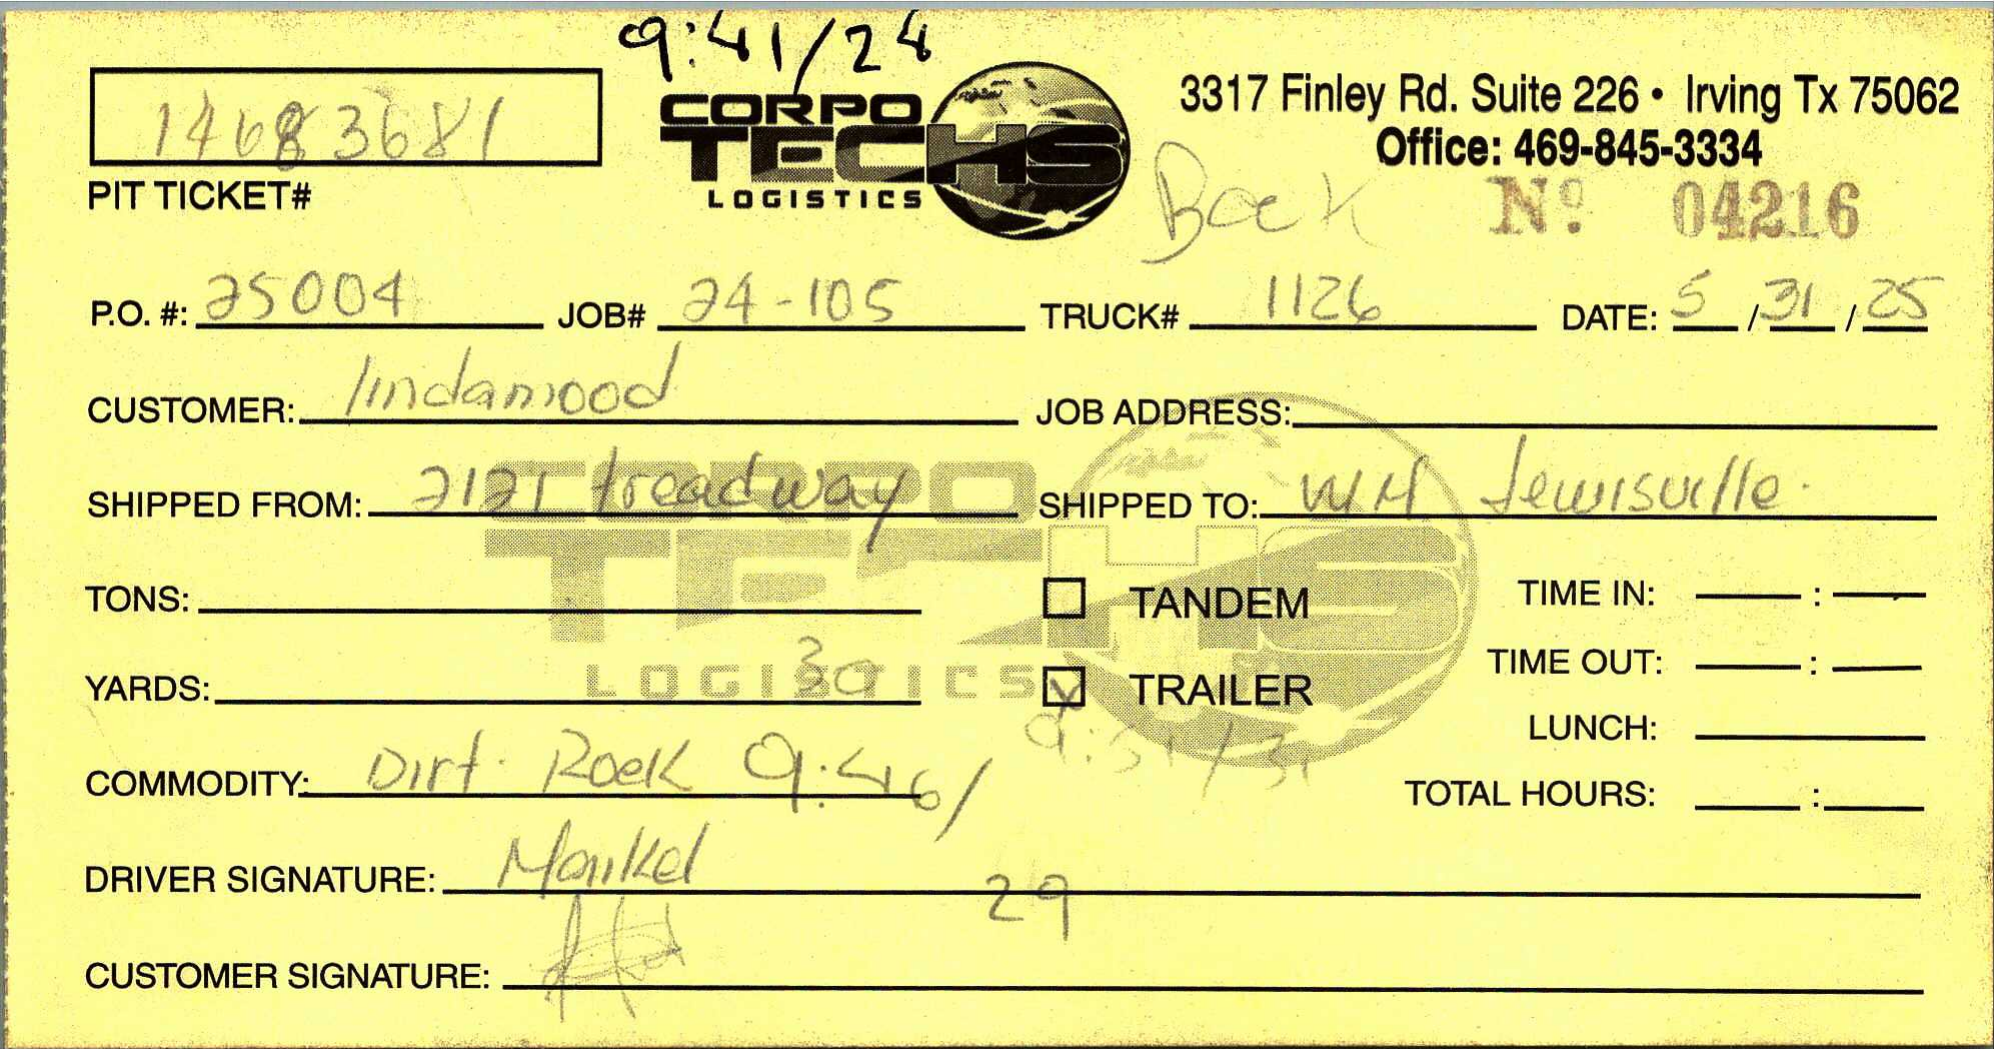 9:41/24
14683681
PIT TICKET#
CORPO
TECHS
LOGISTICS
3317 Finley Rd. Suite 226 • Irving Tx 75062
Office: 469-845-3334
Back
Nº 04216
P.O. #: 25004 JOB# 24-105 TRUCK# 1126 DATE: 5/31/25
CUSTOMER: lindamood JOB ADDRESS:
SHIPPED FROM: 2121 treadway SHIPPED TO: WM Lewisville.
TONS: TANDEM TIME IN: :
YARDS: 30 TRAILER TIME OUT: :
9:31/31
LUNCH:
COMMODITY: Dirt. Rock 9:46/ TOTAL HOURS: :
DRIVER SIGNATURE: Maikel
29
CUSTOMER SIGNATURE:
CORPO
TECHS
LOGISTICS